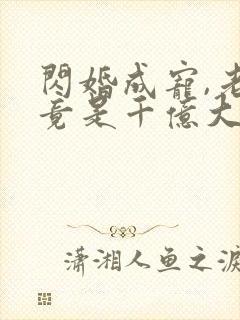 閃婚成寵,老
竟是千億大
瀟湘人鱼之淚